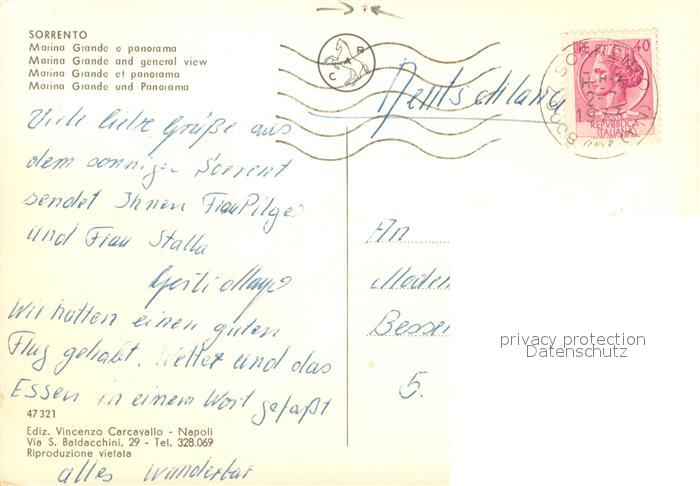 SORRENTO
Marina Grande e panorama
Marina Grande and general view
Marina Grande et panorama
Marina Grande und Panorama
CAR
LIRE 40
SORRENTO
POSTE
REPVBBLICA
ITALIANA
Deutschland
Viele liebe Grüße aus
dem sonnigen Sorrent
sendet Ihnen Frau Pilger
und Frau Stalla
Wir hatten einen guten
Flug gehabt. Wetter und das
Essen in einem Wort gesagt
alles wunderbar
An
Moden
Besse
5.
privacy protection
Datenschutz
47321
Ediz. Vincenzo Carcavallo - Napoli
Via S. Baldacchini, 29 - Tel. 328.069
Riproduzione vietata